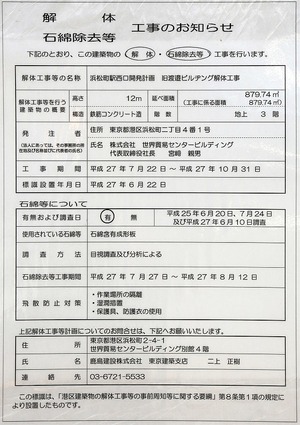 解　体
石綿除去等　工事のお知らせ
下記のとおり、この建築物の 解体・石綿除去等 工事を行います。
解体工事等の名称　浜松町駅西口開発計画　旧渡辺ビルヂング解体工事
解体工事等を行う建築物の概要　高さ　12m　延べ面積　879.74㎡
(工事に係る面積　879.74㎡)
構造　鉄筋コンクリート造　階数　地上　3　階
発注者
(法人にあっては、その事務所の所在地及び名称並びに代表者の氏名)
住所　東京都港区浜松町二丁目4番1号
氏名　株式会社　世界貿易センタービルディング
代表取締役社長　宮﨑　親男
工事期間　平成 27 年 7 月 22 日 ～ 平成 27 年 10 月 31 日
標識設置年月日　平成 27 年 6 月 22 日
石綿等について
有無および調査日　有　無　平成25年6月20日、7月24日
及び平成27年6月10日調査
使用されている石綿等　石綿含有成形板
調査方法　目視調査及び分析による
石綿除去等工事期間　平成 27 年 7 月 27 日 ～ 平成 27 年 8 月 12 日
飛散防止対策　・作業場所の隔離
・湿潤措置
・保護具、防護衣の使用
上記解体工事等計画についてのお問合せは、下記へお願いいたします。
住所　東京都港区浜松町2-4-1
世界貿易センタービルディング別館4階
氏名　鹿島建設株式会社　東京建築支店　二上　正樹
連絡先　03-6721-5533
この標識は、「港区建築物の解体工事等の事前周知等に関する要綱」第8条第1項の規定に
より設置したものです。